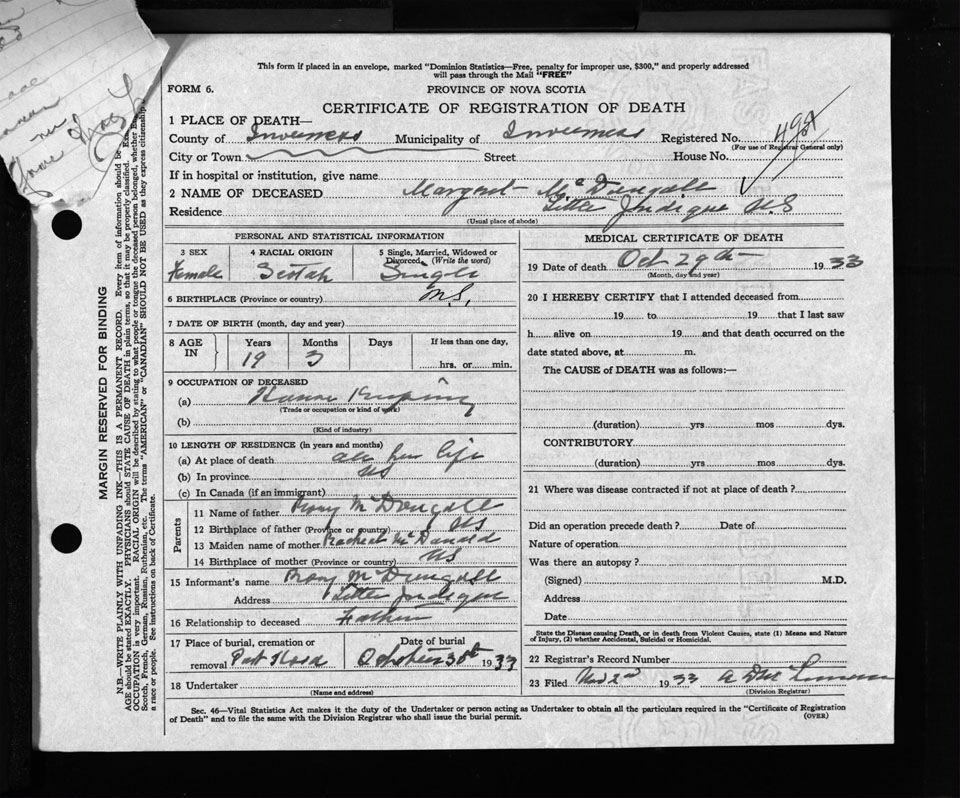 This form if placed in an envelope, marked "Dominion Statistics—Free, penalty for improper use, $300," and properly addressed
will pass through the Mail "FREE"
FORM 6.
PROVINCE OF NOVA SCOTIA
CERTIFICATE OF REGISTRATION OF DEATH
1 PLACE OF DEATH—
County of Inverness Municipality of Inverness Registered No.
(For use of Registrar General only)
City or Town Street House No.
If in hospital or institution, give name
2 NAME OF DECEASED Margaret McDungall
Residence Little Judique N.S
(Usual place of abode)
PERSONAL AND STATISTICAL INFORMATION
3 SEX 4 RACIAL ORIGIN 5 Single, Married, Widowed or Divorced, (Write the word)
Female Scotch Single
6 BIRTHPLACE (Province or country) N.S.
7 DATE OF BIRTH (month, day and year)
8 AGE IN Years Months Days If less than one day,
19 3 hrs. or min.
9 OCCUPATION OF DECEASED
(a) House Keeping
(Trade or occupation or kind of work)
(b)
(Kind of industry)
10 LENGTH OF RESIDENCE (in years and months)
(a) At place of death all her life
(b) In province NS
(c) In Canada (if an immigrant)
Parents
11 Name of father Rory McDougall
12 Birthplace of father (Province or country) NS
13 Maiden name of mother Racheal McDonald
14 Birthplace of mother (Province or country) NS
15 Informant's name Rory McDungall
Address Little Judique
16 Relationship to deceased Father
17 Place of burial, cremation or removal Port Hood
Date of burial October 30th 1933
18 Undertaker
(Name and address)
MEDICAL CERTIFICATE OF DEATH
19 Date of death Oct 29th 1933
(Month, day and year)
20 I HEREBY CERTIFY that I attended deceased from
19 to 19 that I last saw
h alive on 19 and that death occurred on
date stated above, at m.
The CAUSE of DEATH was as follows:—
(duration) yrs mos dys.
CONTRIBUTORY
(duration) yrs mos dys.
21 Where was disease contracted if not at place of death?
Did an operation precede death? Date of
Nature of operation
Was there an autopsy?
(Signed) M.D.
Address
Date
State the Disease causing Death, or in death from Violent Causes, state (1) Means and Nature
of Injury, (2) whether Accidental, Suicidal or Homicidal.
22 Registrar's Record Number
23 Filed Nov 2nd 1933
(Division Registrar)
Sec. 46—Vital Statistics Act makes it the duty of the Undertaker or person acting as Undertaker to obtain all the particulars required in the "Certificate of Registration
of Death" and to file the same with the Division Registrar who shall issue the burial permit.
(OVER)
MARGIN RESERVED FOR BINDING
N.B.—WRITE PLAINLY WITH UNFADING INK—THIS IS A PERMANENT RECORD. Every item of information should be
AGE should be stated EXACTLY. PHYSICIANS should STATE CAUSE OF DEATH in plain terms, so that it may be properly classified.
OCCUPATION is very important. RACIAL ORIGIN will be described by stating to what people or tongue the deceased person belonged, whether
Scotch, French, German, Russian, Ruthenian, etc. The terms "AMERICAN" or "CANADIAN" SHOULD NOT BE USED as they express citizenship
a race or people. See instructions on back of Certificate.